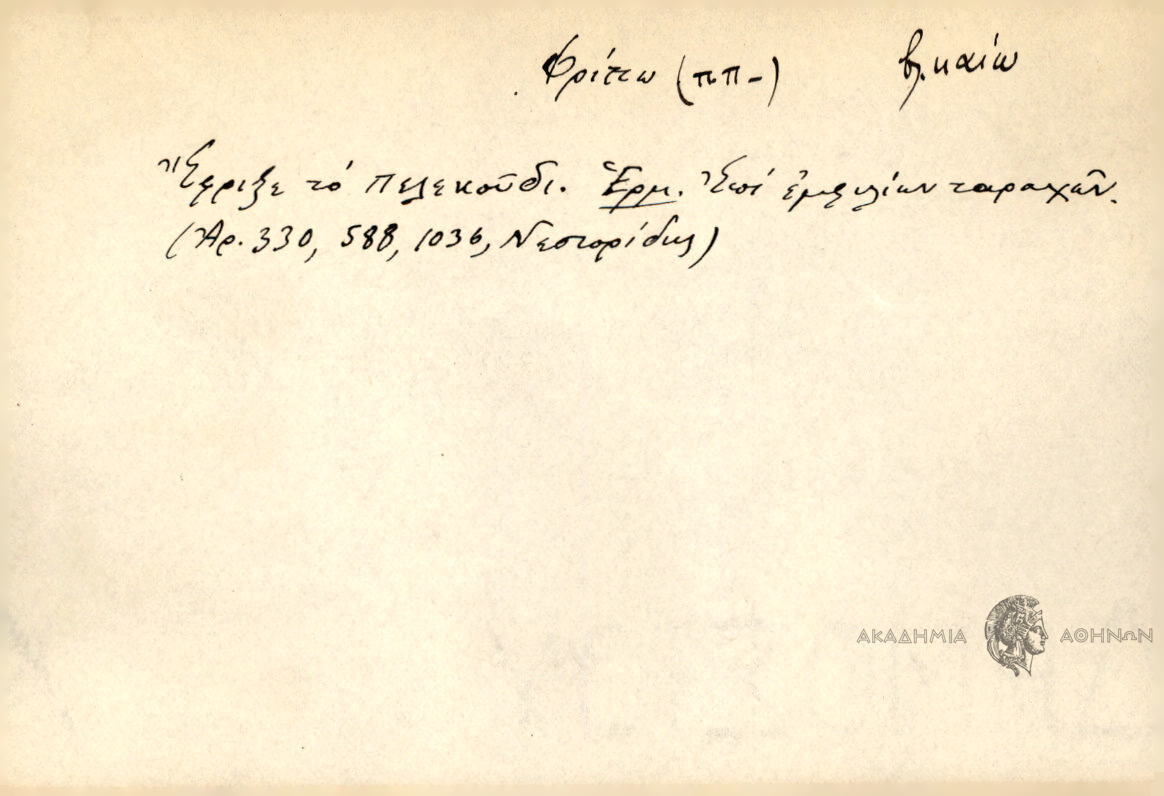 Φρίττω (ππ-) βλ. καίω
Ἔφριξε τό πελεκοῦδι. Ἑρμ. Ἐπί ἐμφυλίων ταραχῶν.
(Ἀρ. 330, 588, 1036, Νεστορίδης)
ΑΚΑΔΗΜΙΑ ΑΘΗΝΩΝ